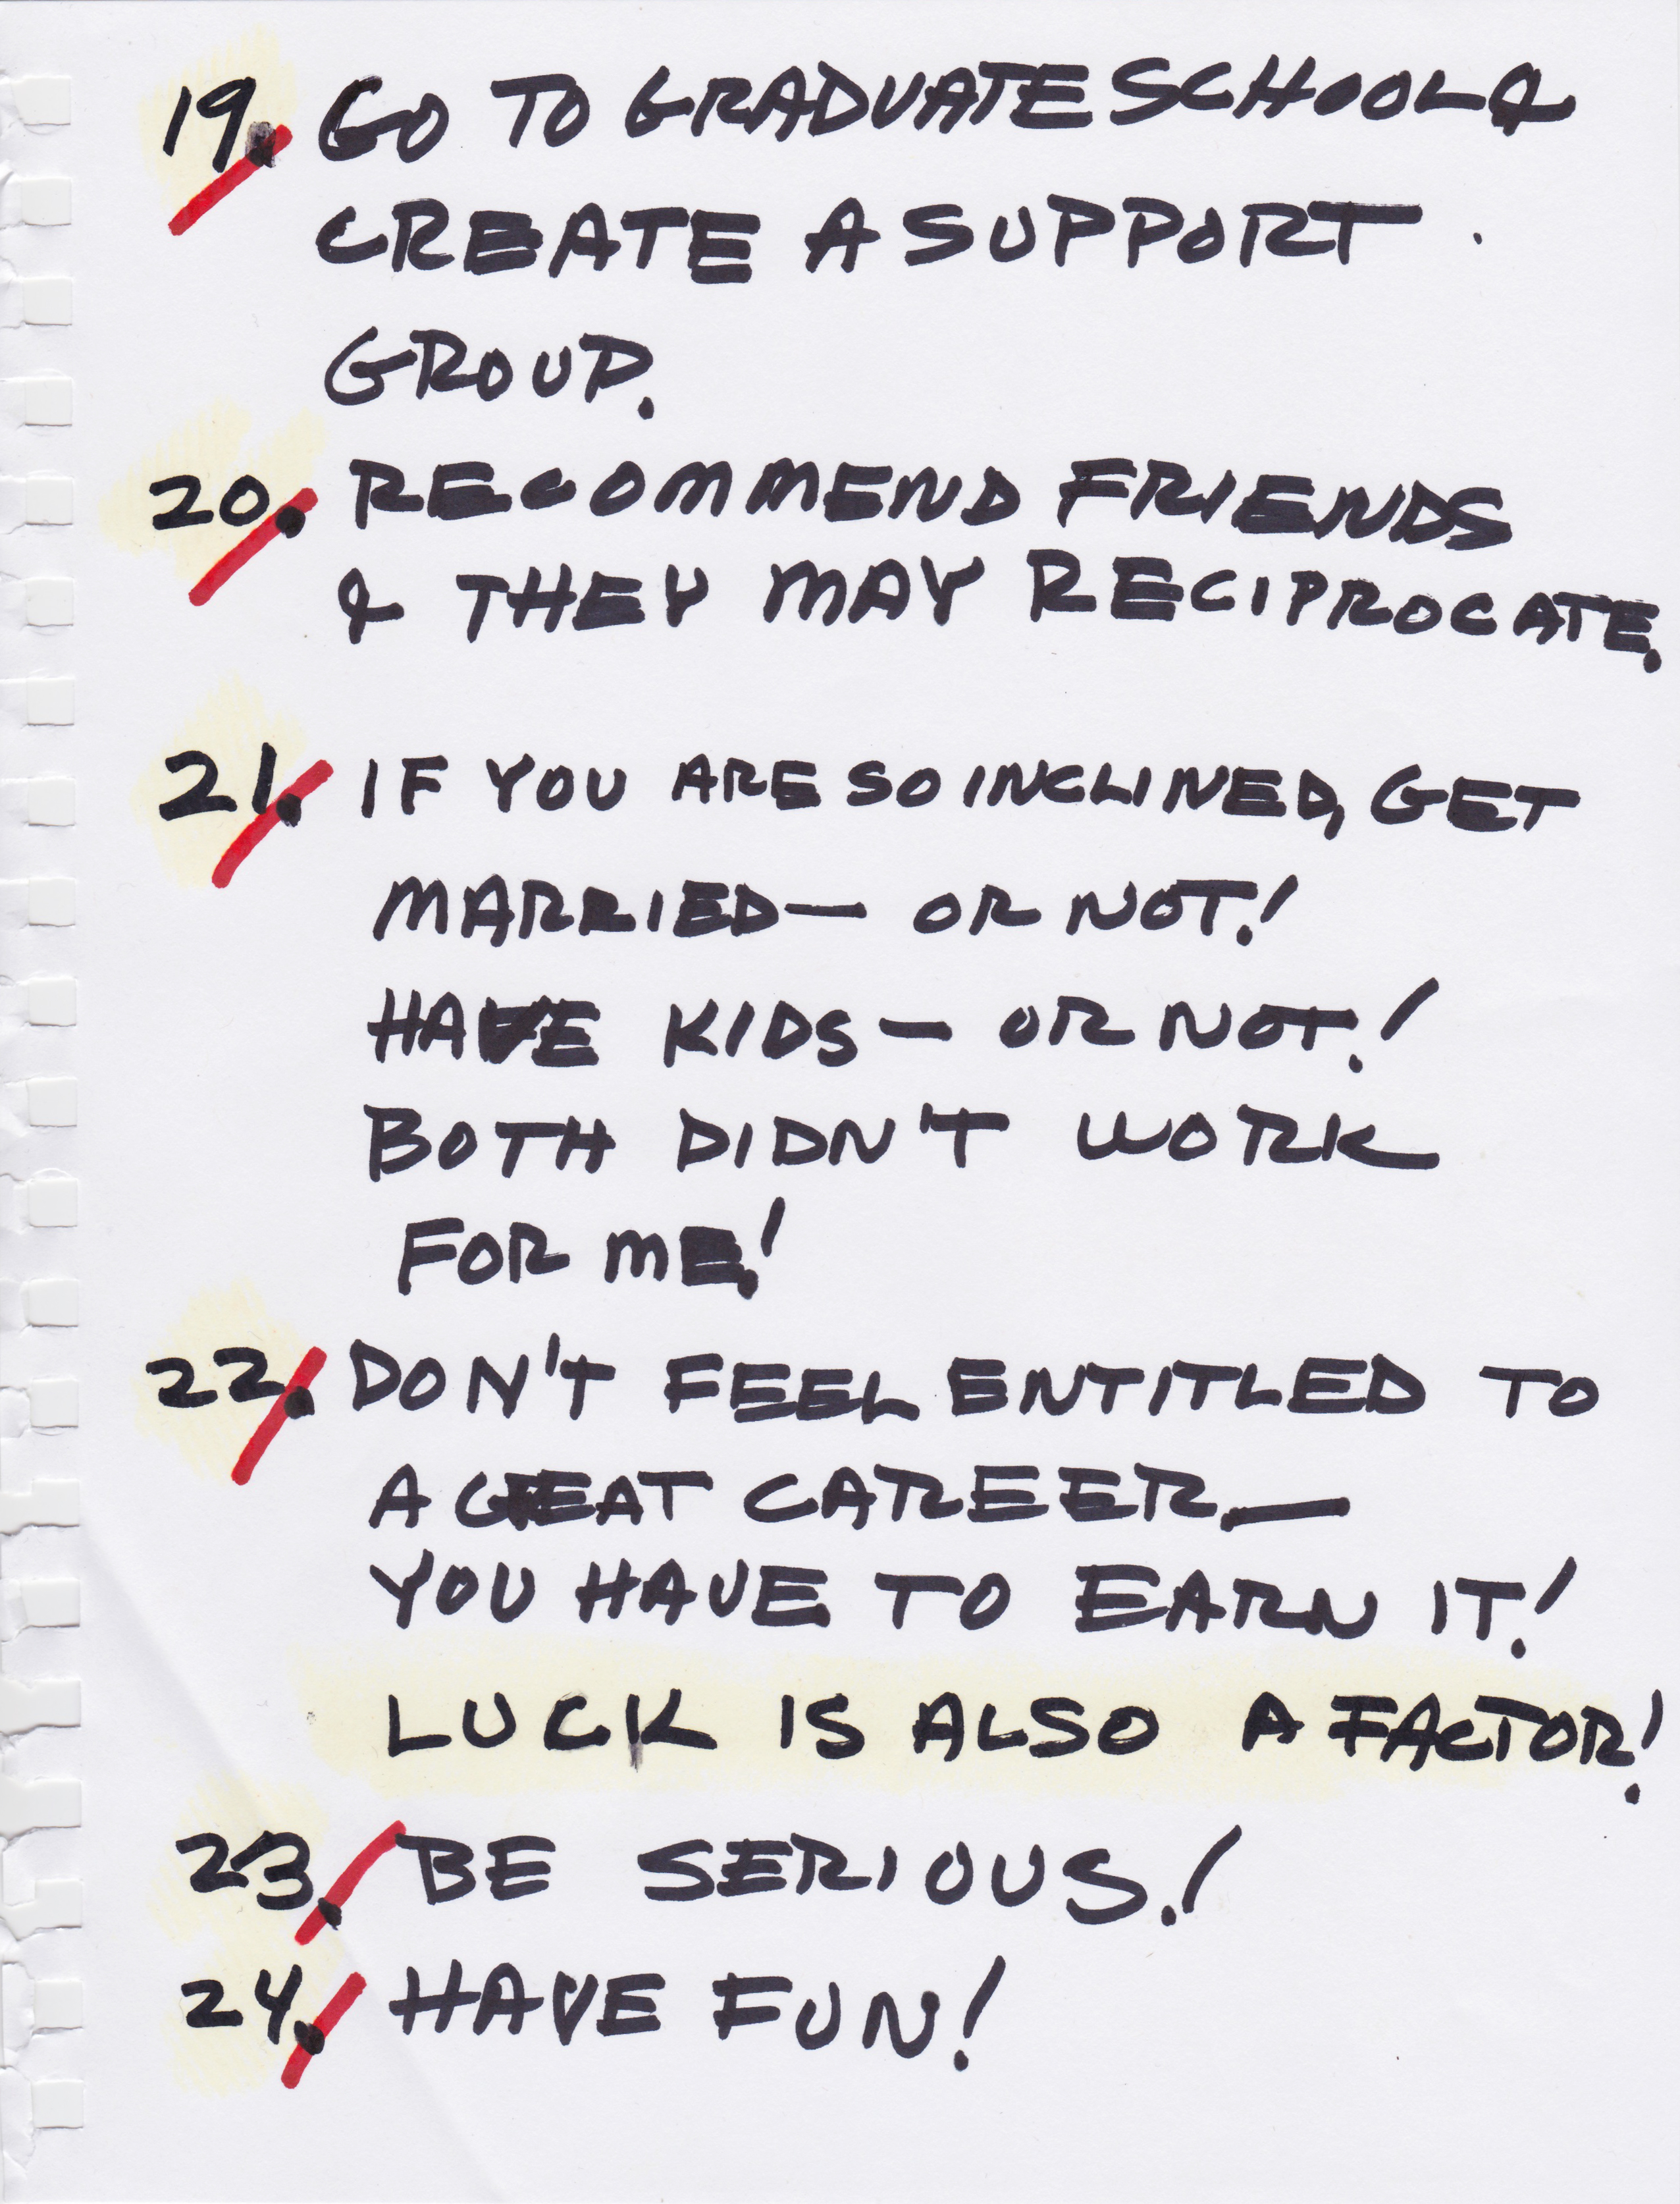 19. GO TO GRADUATE SCHOOL &
CREATE A SUPPORT
GROUP.
20. RECOMMEND FRIENDS
& THEY MAY RECIPROCATE.
21. IF YOU ARE SO INCLINED, GET
MARRIED— OR NOT!
HAVE KIDS— OR NOT!
BOTH DIDN'T WORK
FOR ME!
22. DON'T FEEL ENTITLED TO
A GREAT CAREER—
YOU HAVE TO EARN IT!
LUCK IS ALSO A FACTOR!
23. BE SERIOUS!
24. HAVE FUN!